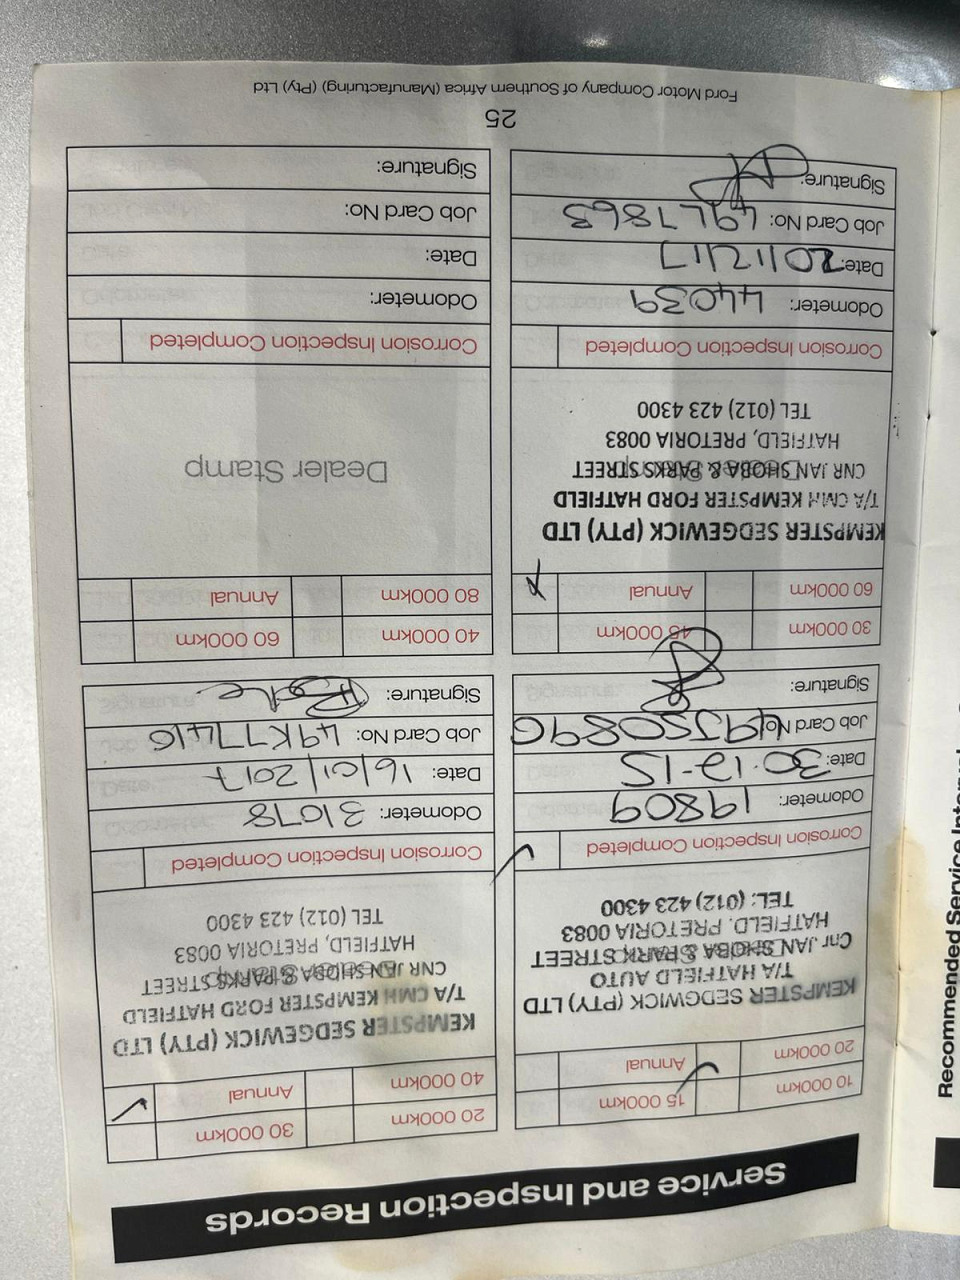 Service and Inspection Records
10 000km
15 000km
20 000km
Annual
KEMPSTER SEDGWICK (PTY) LTD
T/A HATFIELD AUTO
Cnr JAN SHOBA & PARK STREET
HATFIELD. PRETORIA 0083
TEL: (012) 423 4300
Corrosion Inspection Completed
Odometer: 19809
Date: 30-12-15
Job Card No: 49J50896
Signature:
20 000km
30 000km
40 000km
Annual
KEMPSTER SEDGEWICK (PTY) LTD
T/A CMH KEMPSTER FORD HATFIELD
CNR JAN SHOBA & PARKS STREET
HATFIELD, PRETORIA 0083
TEL (012) 423 4300
Corrosion Inspection Completed
Odometer: 31078
Date: 16/01/2017
Job Card No: 49K77416
Signature:
30 000km
45 000km
60 000km
Annual
KEMPSTER SEDGEWICK (PTY) LTD
T/A CMH KEMPSTER FORD HATFIELD
CNR JAN SHOBA & PARKS STREET
HATFIELD, PRETORIA 0083
TEL (012) 423 4300
Corrosion Inspection Completed
Odometer: 44039
Date: 20/12/17
Job Card No: 49L7863
Signature:
40 000km
60 000km
80 000km
Annual
Dealer Stamp
Corrosion Inspection Completed
Odometer:
Date:
Job Card No:
Signature:
25
Ford Motor Company of Southern Africa (Manufacturing) (Pty) Ltd
Recommended Service Interval